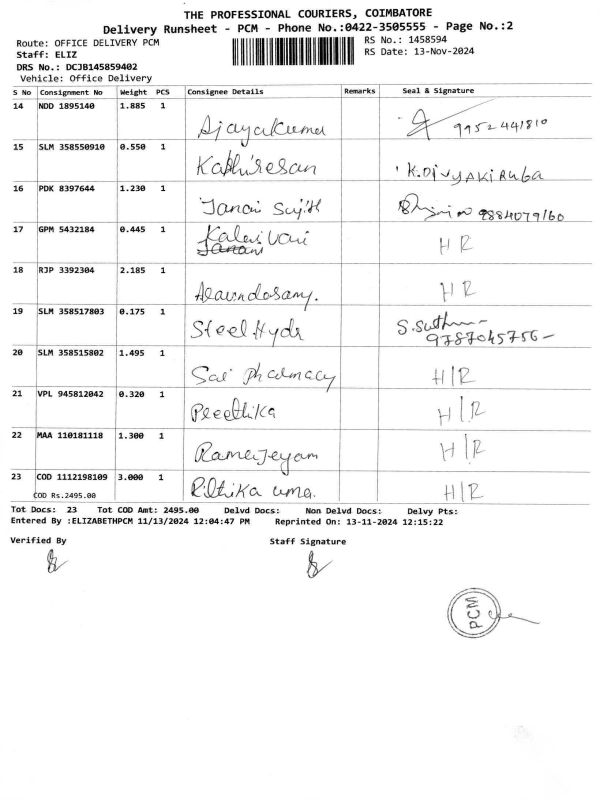 THE PROFESSIONAL COURIERS, COIMBATORE
Delivery Runsheet - PCM - Phone No.:0422-3505555 - Page No.:2
Route: OFFICE DELIVERY PCM RS No.: 1458594
Staff: ELIZ RS Date: 13-Nov-2024
DRS No.: DCJB145859402
Vehicle: Office Delivery
S No Consignment No Weight PCS Consignee Details Remarks Seal & Signature
14 NDD 1895140 1.885 1
Ajayakumar 9952441810
15 SLM 358550910 0.550 1
Kathiresan K.DIVYAKIRUBA
16 PDK 8397644 1.230 1
Janani Sujith 9884079160
17 GPM 5432184 0.445 1
Kalaivani H R
Janani
18 RJP 3392304 2.185 1
H R
19 SLM 358517803 0.175 1
Steel Hydr 9787045756-
20 SLM 358515802 1.495 1
Sai Pharmacy H|R
21 VPL 945812042 0.320 1
Preethika H|R
22 MAA 110181118 1.300 1
Ramajeyam H|R
23 COD 1112198109 3.000 1
COD Rs.2495.00 Rithika uma. H|R
Tot Docs: 23 Tot COD Amt: 2495.00 Delvd Docs: Non Delvd Docs: Delvy Pts:
Entered By :ELIZABETHPCM 11/13/2024 12:04:47 PM Reprinted On: 13-11-2024 12:15:22
Verified By Staff Signature
PCM